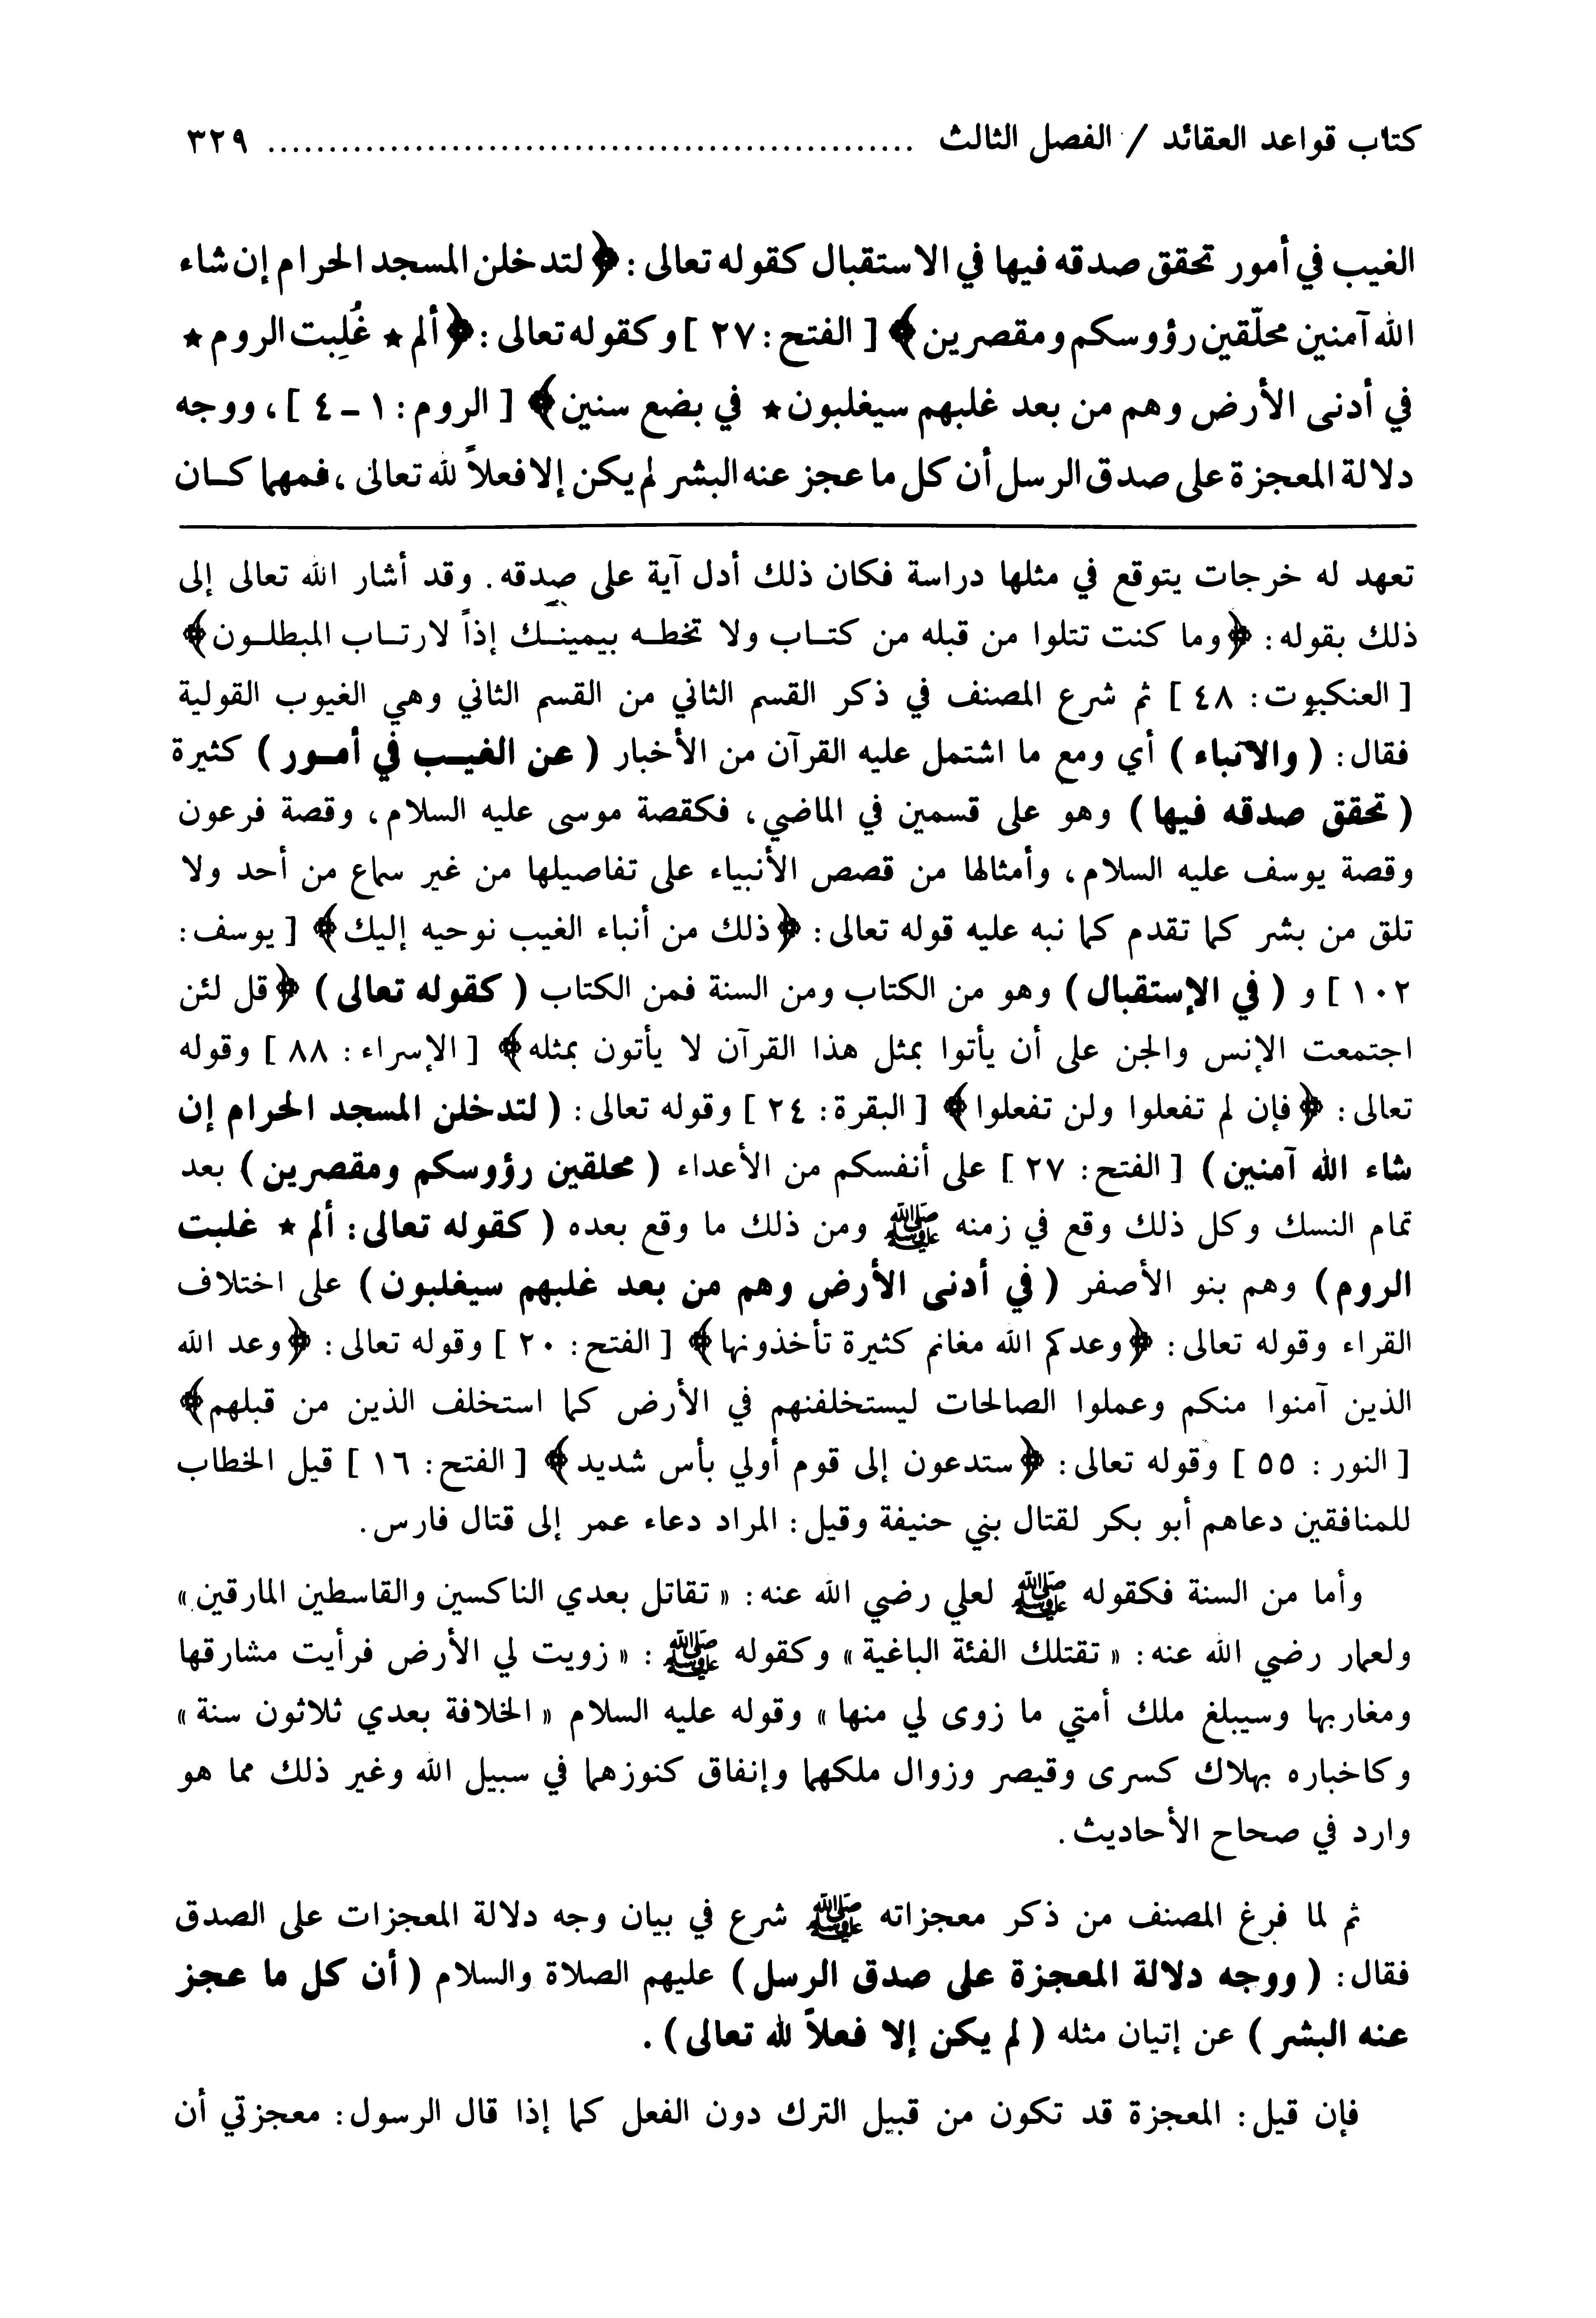 كتاب قواعد العقائد / الفصل الثالث ..................................................... ٣٢٩
الغيب في أمور تحقق صدقه فيها في الاستقبال كقوله تعالى : ﴿ لتدخلن المسجد الحرام إن شاء
الله آمنين محلّقين رؤوسكم ومقصرين ﴾ [ الفتح : ٢٧ ] وكقوله تعالى : ﴿ ألم ★ غُلِبت الروم ★
في أدنى الأرض وهم من بعد غلبهم سيغلبون ★ في بضع سنين ﴾ [ الروم : ١ ـ ٤ ] ، ووجه
دلالة المعجزة على صدق الرسل أن كل ما عجز عنه البشر لم يكن إلا فعلاً لله تعالى ، فمهما كـان
تعهد له خرجات يتوقع في مثلها دراسة فكان ذلك أدل آية على صدقه . وقد أشار الله تعالى إلى
ذلك بقوله : ﴿وما كنت تتلوا من قبله من كتـاب ولا تخطـه بيمينـك إذاً لارتـاب المبطلـون﴾
[ العنكبوت : ٤٨ ] ثم شرع المصنف في ذكر القسم الثاني من القسم الثاني وهي الغيوب القولية
فقال : ( والآنباء ) أي ومع ما اشتمل عليه القرآن من الأخبار ( عن الغيـب في أمـور ) كثيرة
( تحقق صدقه فيها ) وهو على قسمين في الماضي ، فكقصة موسى عليه السلام ، وقصة فرعون
وقصة يوسف عليه السلام ، وأمثالها من قصص الأنبياء على تفاصيلها من غير سماع من أحد ولا
تلق من بشر كما تقدم كما نبه عليه قوله تعالى : ﴿ذلك من أنباء الغيب نوحيه إليك﴾ [ يوسف :
١٠٢ ] و ( في الإستقبال ) وهو من الكتاب ومن السنة فمن الكتاب ( كقوله تعالى ) ﴿قل لئن
اجتمعت الإنس والجن على أن يأتوا بمثل هذا القرآن لا يأتون بمثله﴾ [ الإسراء : ٨٨ ] وقوله
تعالى : ﴿فإن لم تفعلوا ولن تفعلوا﴾ [ البقرة : ٢٤ ] وقوله تعالى : ( لتدخلن المسجد الحرام إن
شاء الله آمنين ) [ الفتح : ٢٧ ] على أنفسكم من الأعداء ( محلقين رؤوسكم ومقصرين ) بعد
تمام النسك وكل ذلك وقع في زمنه ﷺ ومن ذلك ما وقع بعده ( كقوله تعالى : ألم ★ غلبت
الروم ) وهم بنو الأصفر ( في أدنى الأرض وهم من بعد غلبهم سيغلبون ) على اختلاف
القراء وقوله تعالى : ﴿وعدكم الله مغانم كثيرة تأخذونها﴾ [ الفتح : ٢٠ ] وقوله تعالى : ﴿وعد الله
الذين آمنوا منكم وعملوا الصالحات ليستخلفنهم في الأرض كما استخلف الذين من قبلهم﴾
[ النور : ٥٥ ] وقوله تعالى : ﴿ستدعون إلى قوم أولي بأس شديد﴾ [ الفتح : ١٦ ] قيل الخطاب
للمنافقين دعاهم أبو بكر لقتال بني حنيفة وقيل : المراد دعاء عمر إلى قتال فارس .
وأما من السنة فكقوله ﷺ لعلي رضي الله عنه : « تقاتل بعدي الناكسين والقاسطين المارقين »
ولعمار رضي الله عنه : « تقتلك الفئة الباغية » وكقوله ﷺ : « زويت لي الأرض فرأيت مشارقها
ومغاربها وسيبلغ ملك أمتي ما زوى لي منها » وقوله عليه السلام « الخلافة بعدي ثلاثون سنة »
وكاخباره بهلاك كسرى وقيصر وزوال ملكهما وإنفاق كنوزهما في سبيل الله وغير ذلك مما هو
وارد في صحاح الأحاديث .
ثم لما فرغ المصنف من ذكر معجزاته ﷺ شرع في بيان وجه دلالة المعجزات على الصدق
فقال : ( ووجه دلالة المعجزة على صدق الرسل ) عليهم الصلاة والسلام ( أن كل ما عجز
عنه البشر ) عن إتيان مثله ( لم يكن إلا فعلاً لله تعالى ) .
فإن قيل : المعجزة قد تكون من قبيل الترك دون الفعل كما إذا قال الرسول : معجزتي أن